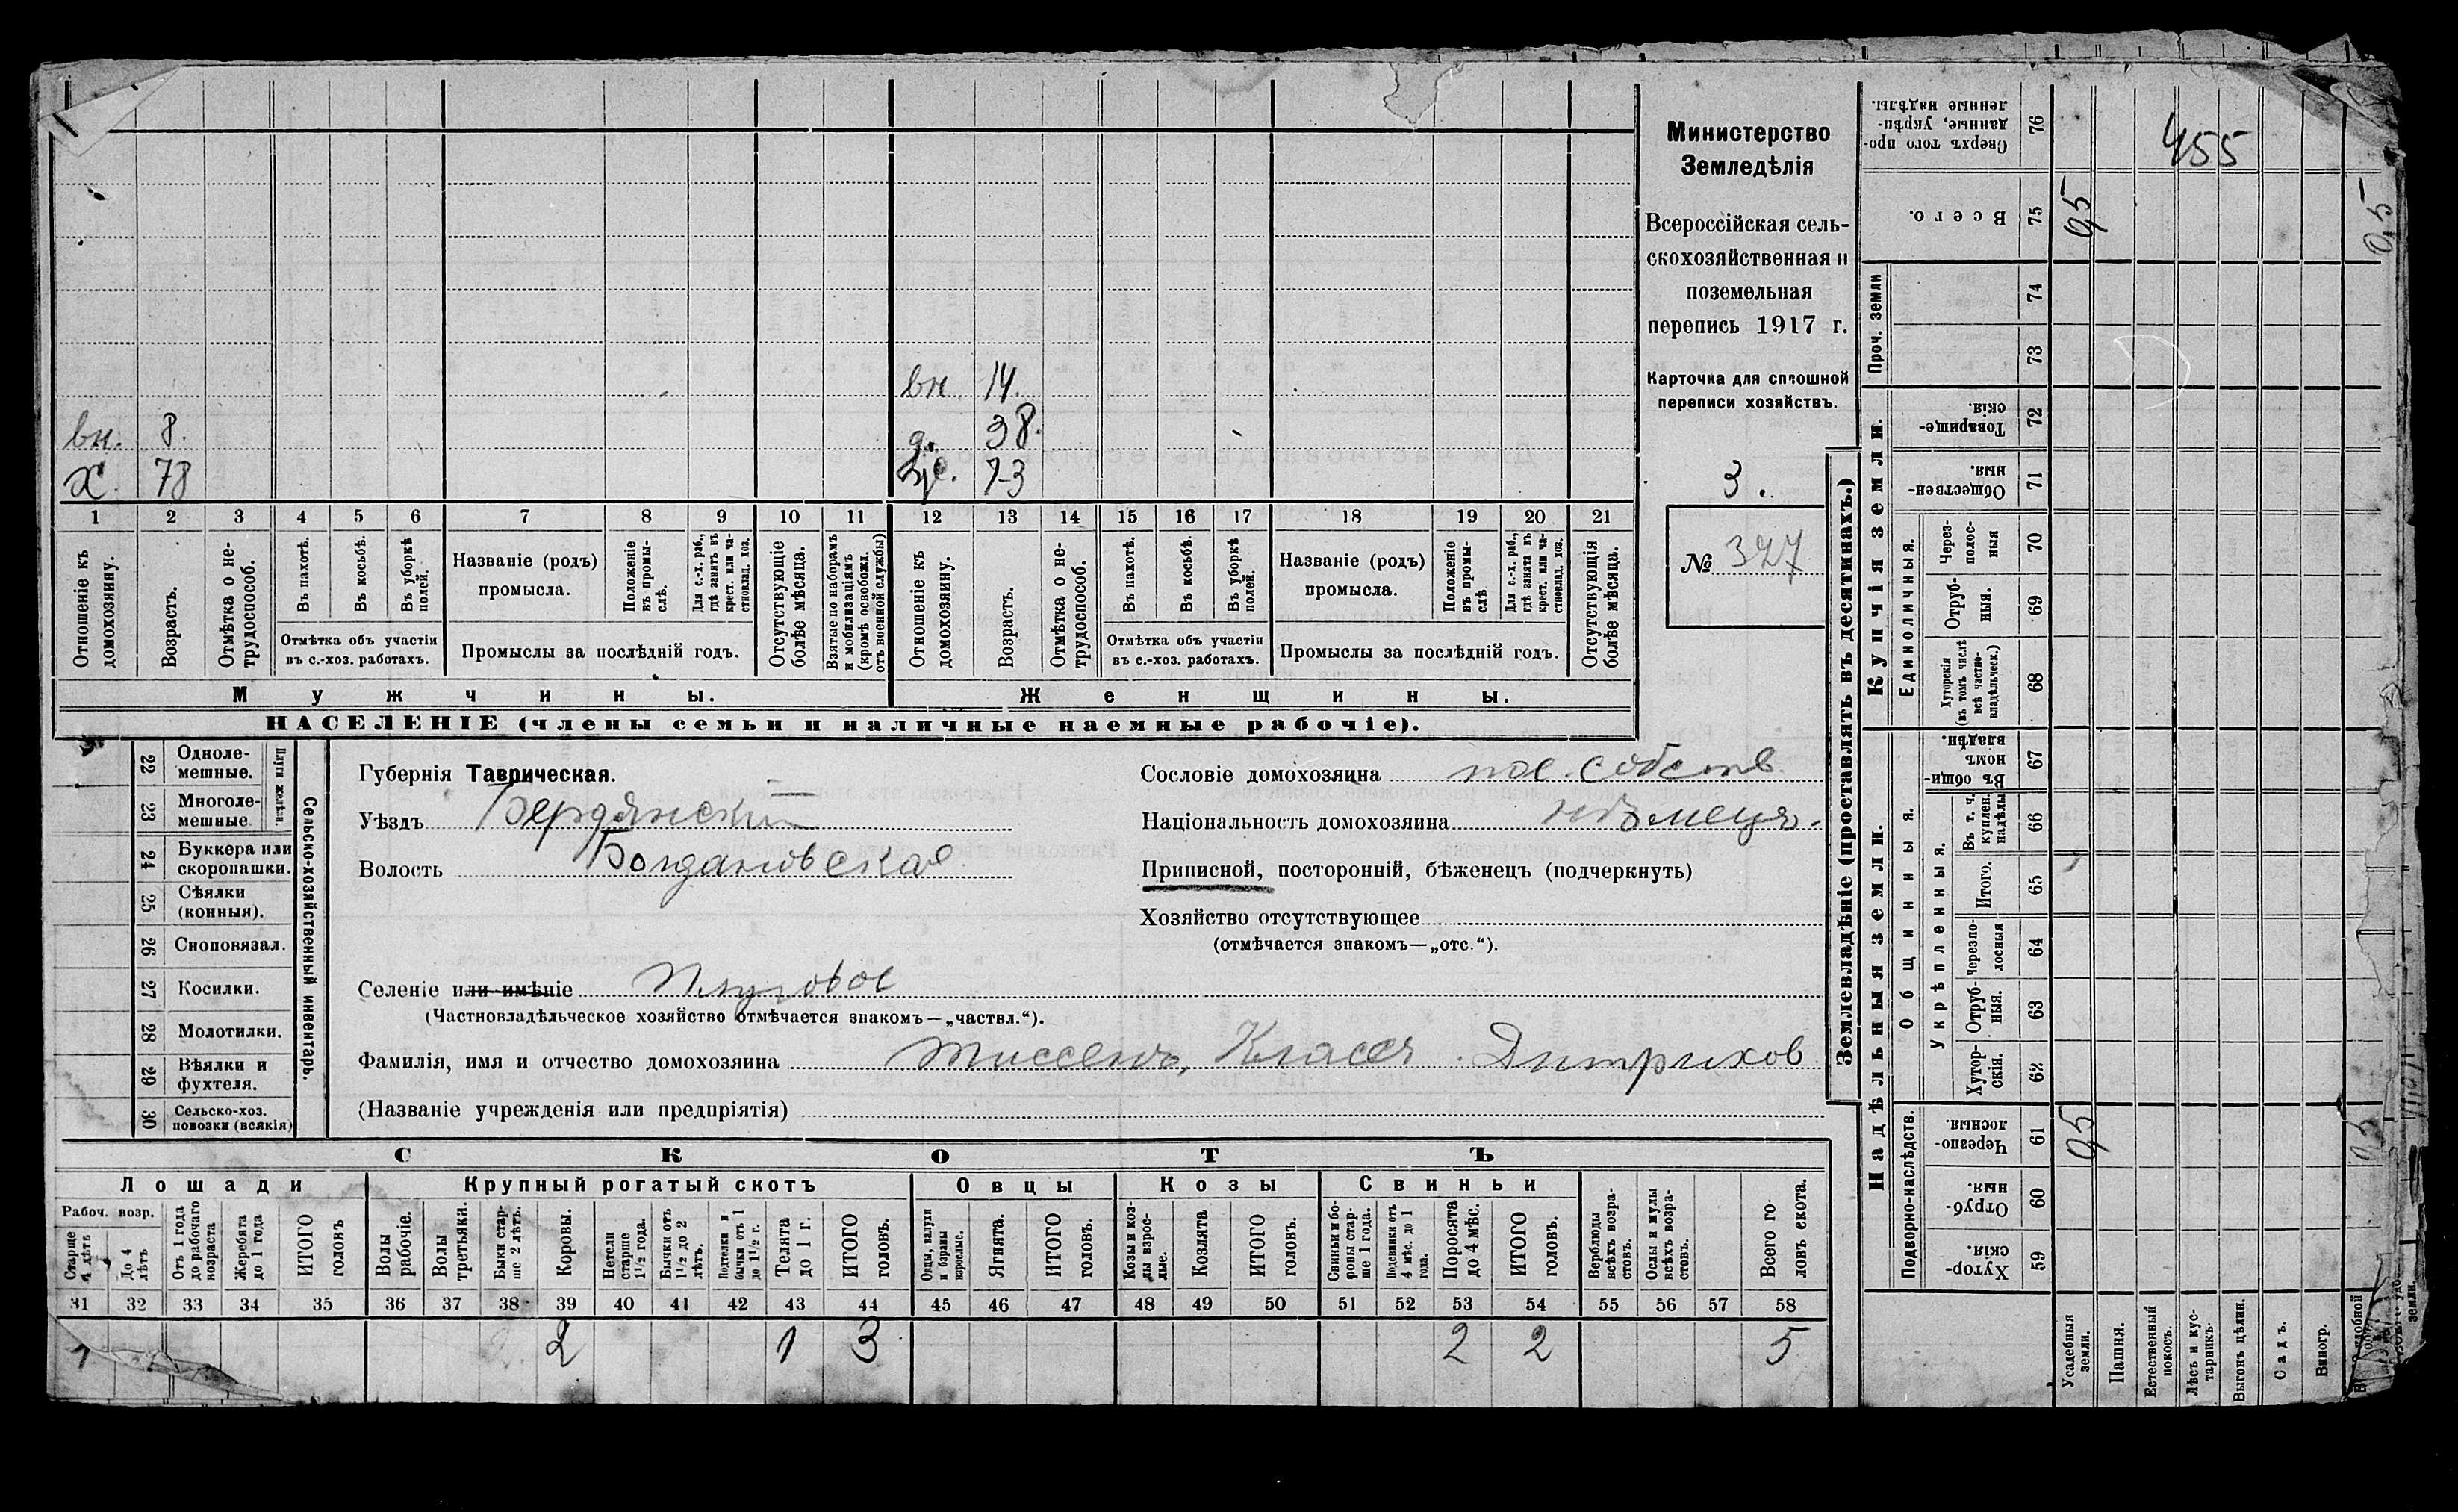 вн. 14.
вн. 8. д. 38.
х. 78 ж. 73
1 2 3 4 5 6 7 8 9 10 11 12 13 14 15 16 17 18 19 20 21
Отношеніе къ домохозяину.
Возрастъ.
Отмѣтка о не-
трудоспособ.
Въ пахотѣ.
Въ косьбѣ.
Въ уборкѣ
полей.
Отмѣтка объ участіи
въ с.-хоз. работахъ.
Названіе (родъ)
промысла.
Положеніе
въ промы-
слѣ.
Для с.-х. раб.,
гдѣ занятъ въ
крест. или ча-
стновлад. хоз.
Промыслы за послѣдній годъ.
Отсутствующіе
болѣе мѣсяца.
Взятые по наборамъ
и мобилизаціямъ
(кромѣ освобожд.
отъ военной службы)
Отношеніе къ
домохозяину.
Возрастъ.
Отмѣтка о не-
трудоспособ.
Въ пахотѣ.
Въ косьбѣ.
Въ уборкѣ
полей.
Отмѣтка объ участіи
въ с.-хоз. работахъ.
Названіе (родъ)
промысла.
Положеніе
въ промы-
слѣ
Для с.-х. раб.,
гдѣ занята въ
крест. или ча-
стновлад. хоз.
Промыслы за послѣдній годъ.
Отсутствующія
болѣе мѣсяца.
Мужчины.
Женщины.
НАСЕЛЕНІЕ (члены семьи и наличные наемные рабочіе).
Министерство
Земледѣлія
Всероссійская сель-
скохозяйственная и
поземельная
перепись 1917 г.
Карточка для сплошной
переписи хозяйствъ.
3.
№ 327
22 Одноле-
мешные.
23 Многоле-
мешные
Плуги желѣзн.
24 Буккера или
скоропашки.
25 Сѣялки
(конныя).
26 Сноповязал.
27 Косилки.
28 Молотилки.
29 Вѣялки и
фухтеля.
30 Сельско-хоз.
повозки (всякія)
Сельско-хозяйственный инвентарь.
Губернія Таврическая.
Уѣздъ Бердянскій
Волость Богдановская
Селеніе или имѣніе Плуговое
(Частновладѣльческое хозяйство отмѣчается знакомъ—„частвл.“).
Фамилія, имя и отчество домохозяина Тиссенъ, Класъ Дитрихов
(Названіе учрежденія или предпріятія)
Сословіе домохозяина пос. собств.
Національность домохозяина нѣмецъ.
Приписной, посторонній, бѣженецъ (подчеркнуть)
Хозяйство отсутствующее
(отмѣчается знакомъ—„отс.“).
СКОТЪ
Лошади
Крупный рогатый скотъ
Овцы
Козы
Свиньи
Рабоч. возр.
Старше
4 лѣтъ
До 4
лѣтъ
Отъ 1 года
до рабочаго
возраста
Жеребята
до 1 года
ИТОГО
головъ
Волы
рабочіе.
Волы
третьяки.
Быки стар-
ше 2 лѣтъ.
Коровы.
Нетели
старше
1½ года.
Бычки отъ
1½ до 2
лѣтъ.
Подтелки и
бычки отъ 1
до 1½ г.
Телята
до 1 г.
ИТОГО
головъ.
Овцы, валухи
и бараны
взрослые.
Ягнята.
ИТОГО
головъ.
Козы и коз-
лы взрос-
лые.
Козлята
ИТОГО
головъ.
Свиньи и бо-
ровы стар-
ше 1 года.
Подсвинки отъ
4 мѣс. до 1
года.
Поросята
до 4 мѣс.
ИТОГО
головъ.
Верблюды
всѣхъ возра-
стовъ.
Ослы и мулы
всѣхъ возра-
стовъ.
Всего го-
ловъ скота.
31 32 33 34 35 36 37 38 39 40 41 42 43 44 45 46 47 48 49 50 51 52 53 54 55 56 57 58
2 1 3 2 2 5
Землевладѣніе (проставлять въ десятинахъ.)
Сверхъ того про-
данные, укрѣп-
ленные надѣлы.
76
455
Всего.
75
0,5
0,5
Проч. земли
74
73
Купчія земли.
Товарище-
скія.
72
Обществен-
ныя.
71
Единоличныя.
Через-
полос-
ныя
70
Отруб-
ныя.
69
Хуторскія
(въ томъ числѣ
всѣ частно-
владѣльческ.)
68
Надѣльныя земли.
Общинныя.
Въ общи-
номъ
владѣн.
67
Укрѣпленныя.
Въ т. ч.
куплен.
надѣлы
66
Итого.
65
Черезпо-
лосныя
64
Отруб-
ныя.
63
Хутор-
скія.
62
Подворно-наслѣдств.
Черезпо-
лосныя.
61
0,5
0,5
Отруб-
ныя.
60
Хутор-
скія.
59
Усадебныя
земли.
Пашня.
Естественный
покосъ.
Лѣсъ и кус-
тарникъ
Выгонъ цѣлин.
Садъ.
Виногр.